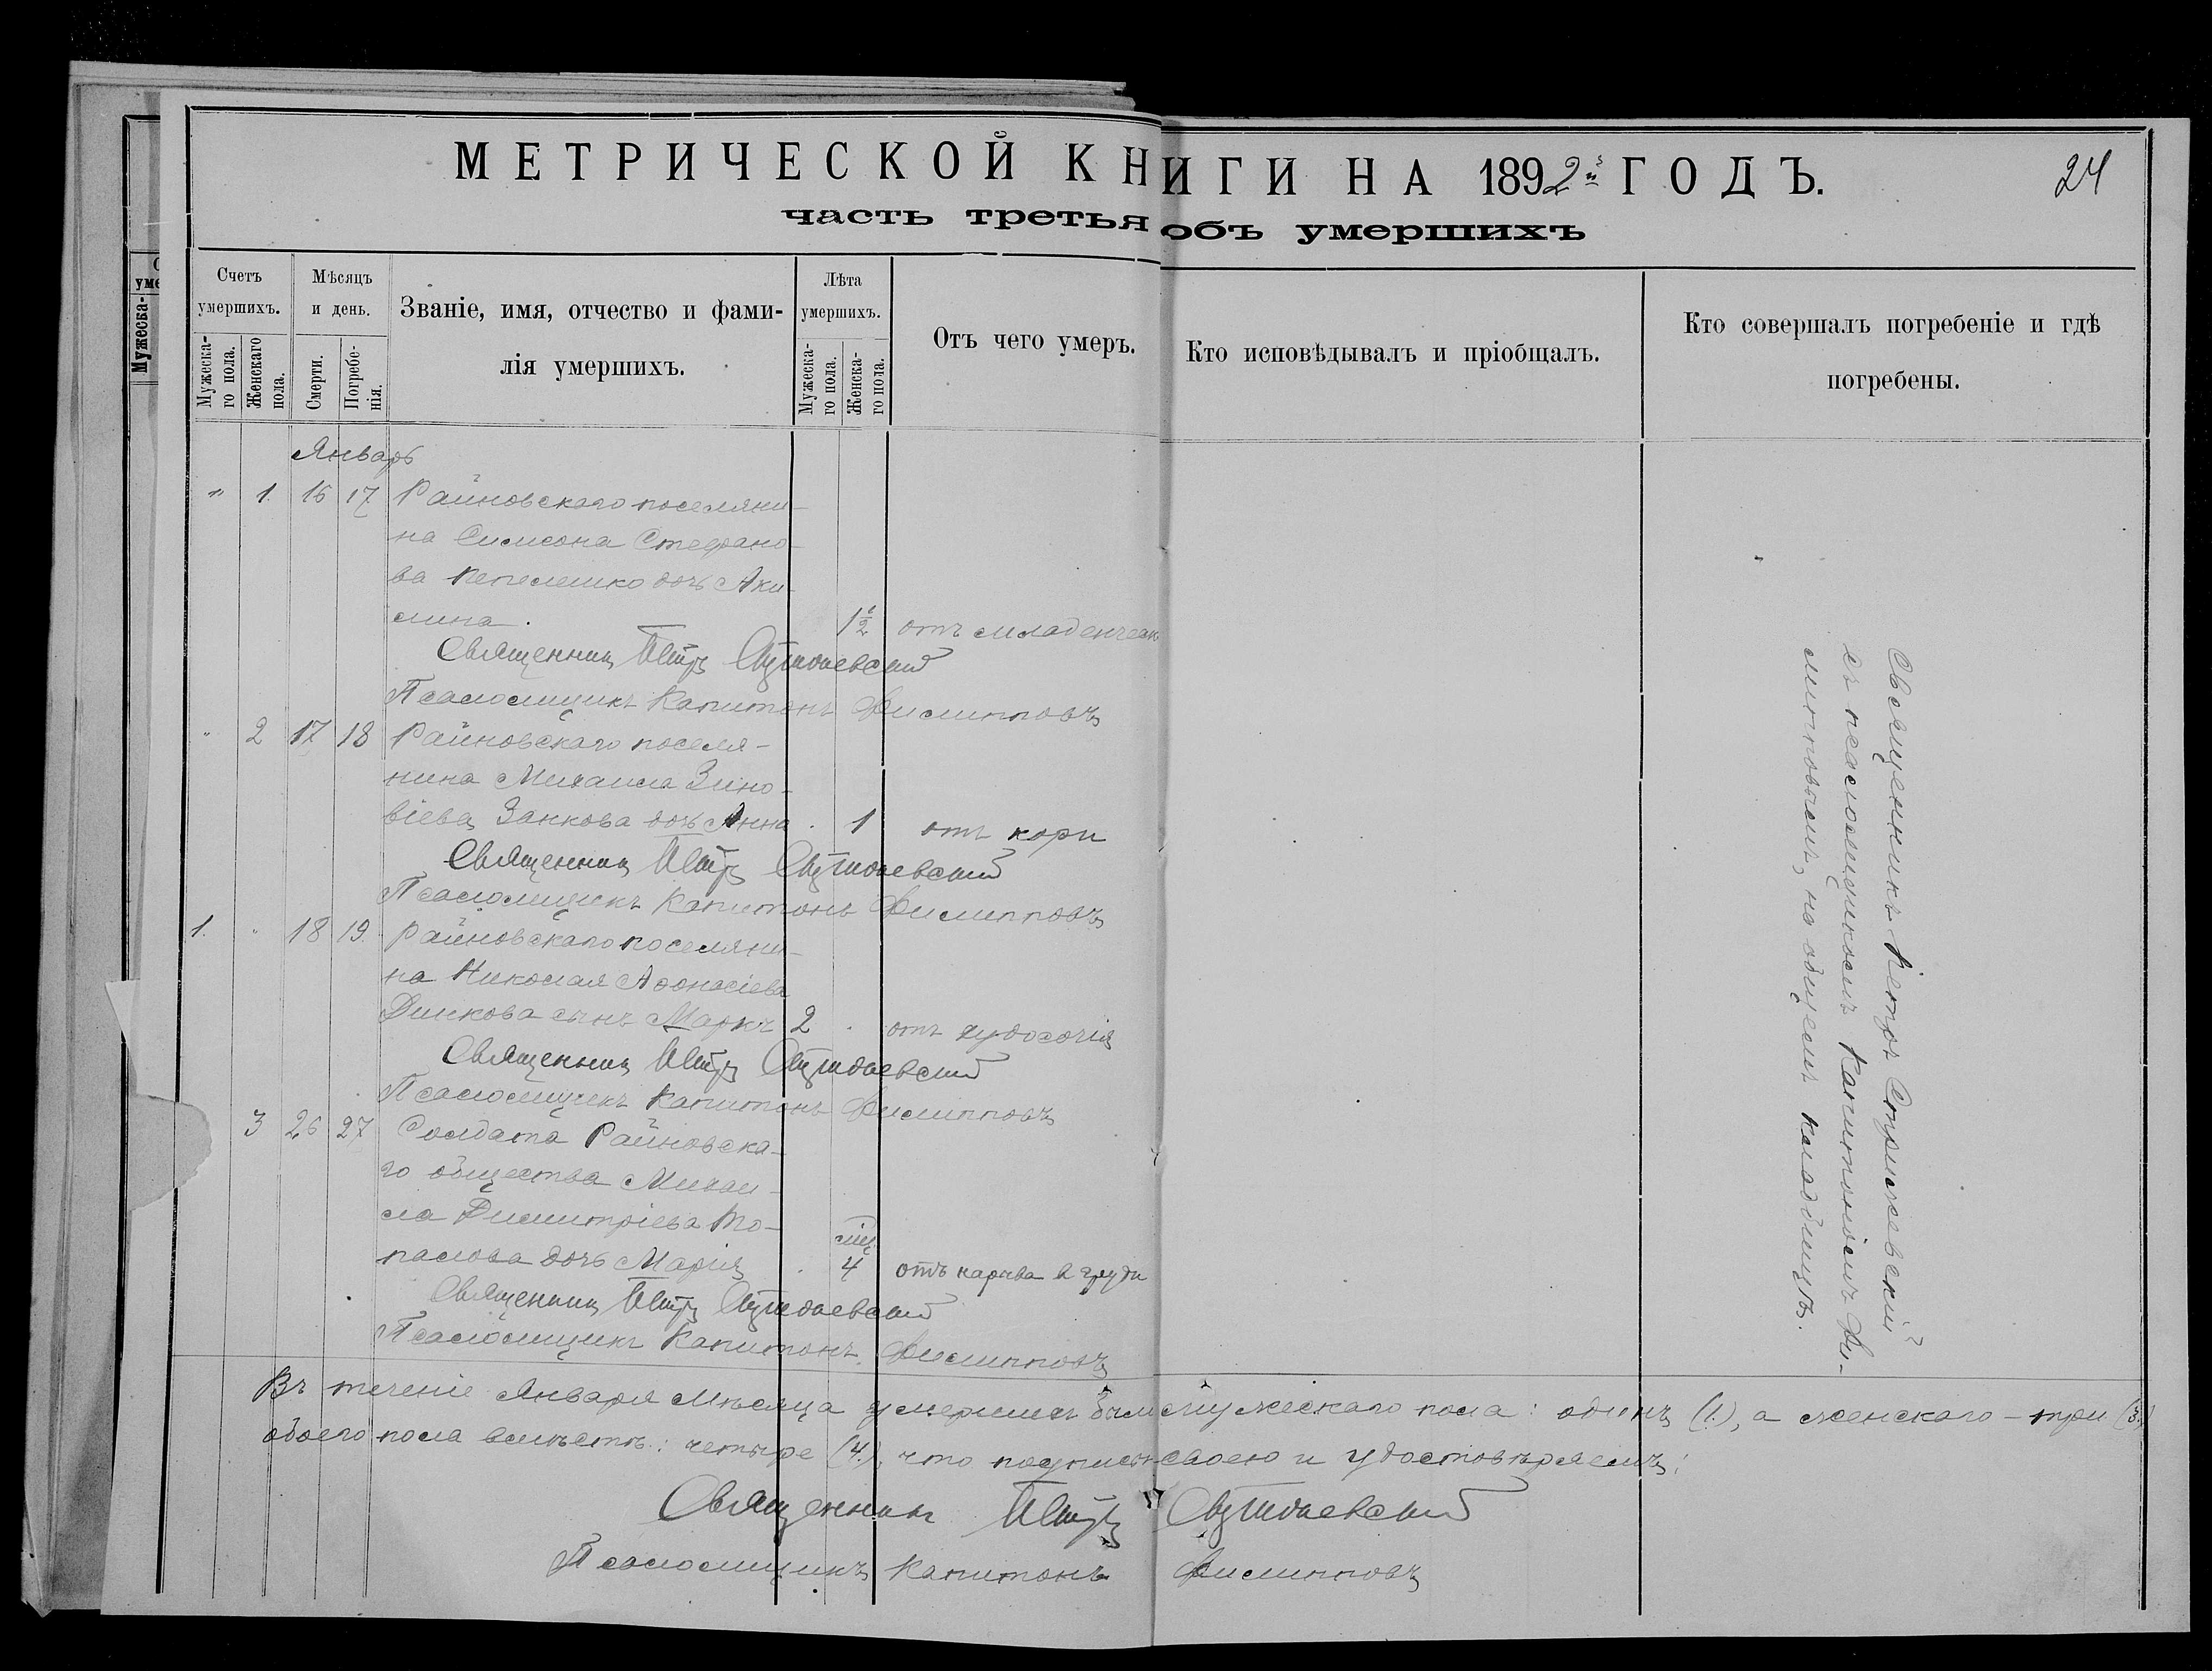 МЕТРИЧЕСКОЙ КНИГИ НА 1892й ГОДЪ.
24
часть третья объ умершихъ
Счетъ умершихъ.
Мужеска-
го пола.
Женскаго
пола.
Мѣсяцъ
и день.
Смерти.
Погребе-
нія.
Званіе, имя, отчество и фами-
лія умершихъ.
Лѣта
умершихъ.
Мужеска-
го пола.
Женска-
го пола.
Отъ чего умеръ.
Кто исповѣдывалъ и пріобщалъ.
Кто совершалъ погребеніе и гдѣ
погребены.
Январь
" 1. 16 17 Райновскаго поселяни-
на Симеона Стефано-
ва дочь Аки-
лина. 1½ отъ младенческ
Священникъ Петръ
Псаломщикъ Капитонъ Филипповъ
" 2 17 18 Райновскаго поселя-
нина Михаила Зино-
віева Занкова дочь Анна 1 отъ кори
Священникъ Петръ
Псаломщикъ Капитонъ Филипповъ
1. " 18 19. Райновскаго поселяни-
на Николая Афонасіева
Димкова сынъ Маркъ 2 отъ худосочія
Священникъ Петръ
Псаломщикъ Капитонъ Филипповъ
3 26 27 Солдата Райновска-
го общества Михаи-
ла Димитріева
дочь Марія 4 отъ нарыва в груди
Священникъ Петръ
Псаломщикъ Капитонъ Филипповъ
Священникъ Петръ
съ псаломщикомъ Капитономъ Фи-
липповымъ, на общемъ кладбищѣ.
Въ теченіе Января мѣсяца умершихъ было мужескаго пола: одинъ (1.), а женскаго – три (3.)
обоего пола вмѣстѣ: четыре (4.), что подписью своею и удостовѣряемъ:
Священникъ Петръ
Псаломщикъ Капитонъ Филипповъ